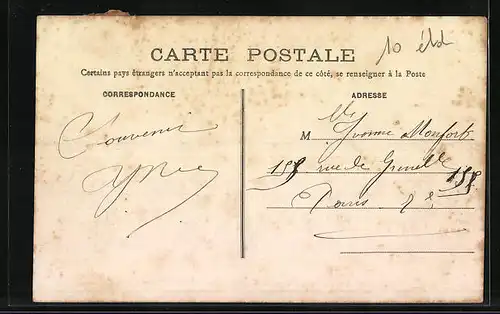 10
CARTE POSTALE
Certains pays étrangers n'acceptant pas la correspondance de ce côté, se renseigner à la Poste
CORRESPONDANCE
ADRESSE
Souvenir
Mlle
M Yvonne
rue de Grenelle
Paris